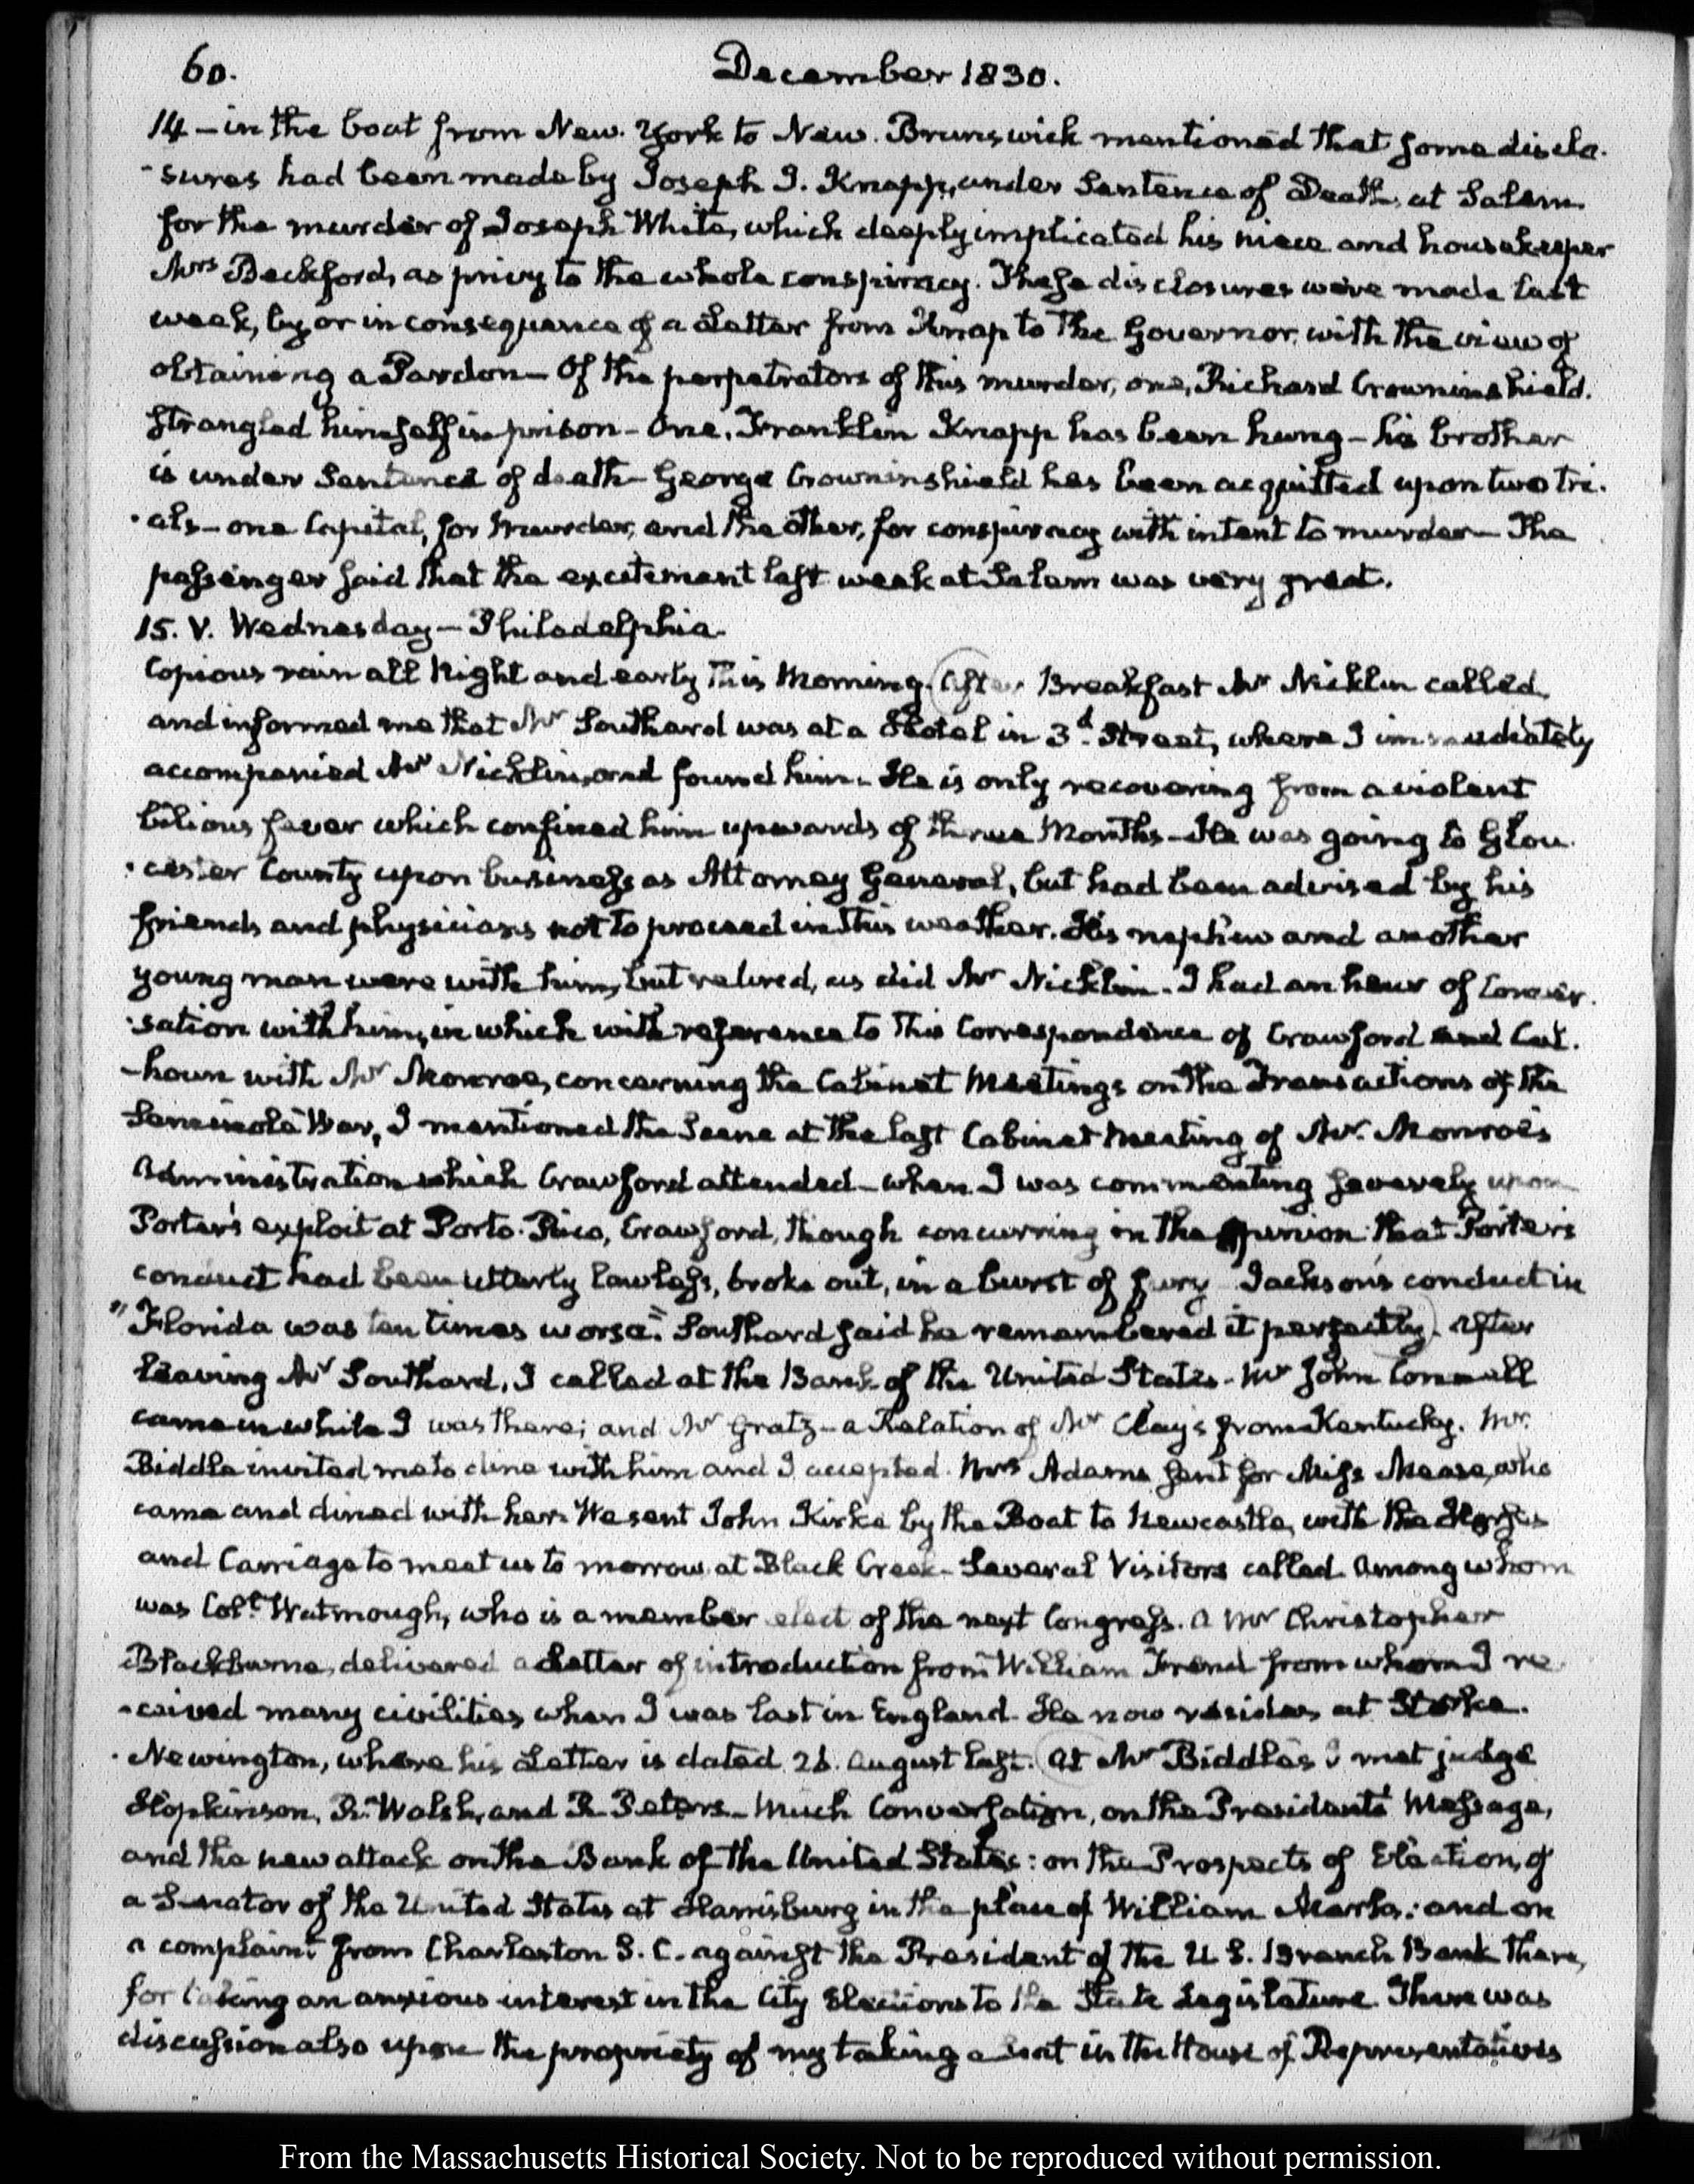 60. December 1830.
14 — in the boat from New. York to New. Brunswick mentioned that some disclo-
-sures had been made by Joseph J. Knapp, under Sentence of Death, at Salem.
for the murder of Joseph White, which deeply implicated his niece and housekeeper
Mrs Beckford, as privy to the whole conspiracy. These disclosures were made last
week, by, or in consequence of a Letter from Knap to the Governor, with the view of
obtaining a Pardon — Of the perpetrators of this murder, one, Richard Crowninshield.
strangled himself in prison — One, Franklin Knapp has been hung — his brother
is under Sentence of death — George Crowninshield has been acquitted upon two tri-
-als — one Capital, for Murder, and the other, for conspiracy with intent to murder — The
passenger said that the excitement last week at Salem was very great.
15. V. Wednesday — Philadelphia.
Copious rain all Night and early this Morning. After Breakfast Mr Nicklin called,
and informed me that Mr Southard was at a Hotel in 3d. Street, where I immediately
accompanied Mr Nicklin, and found him. He is only recovering from a violent
bilious fever which confined him upwards of three Months — He was going to Glou-
-cester County upon business as Attorney General, but had been advised by his
friends and physicians not to proceed in this weather. His nephew and another
young man were with him, but retired, as did Mr Nicklin. I had an hour of Conver-
-sation with him, in which with reference to this Correspondence of Crawford and Cal-
-houn with Mr Monroe, concerning the Cabinet Meetings on the Transactions of the
Seminole War, I mentioned the Scene at the last Cabinet Meeting of Mr. Monroe's
Administration which Crawford attended — when I was commenting severely upon
Porter's exploit at Porto-Rico, Crawford, though concurring in the opinion that Porter's
conduct had been utterly lawless, broke out, in a burst of fury Jackson's conduct in
"Florida was ten times worse". Southard said he remembered it perfectly. After
leaving Mr Southard, I called at the Bank of the United States. Mr John Connell
came in while I was there; and Mr Gratz — a Relation of Mr Clay's from Kentucky. Mr.
Biddle invited me to dine with him and I accepted. Mrs Adams sent for Miss Mease, who
came and dined with her. We sent John Kirke by the Boat to Newcastle, with the Horses
and Carriage to meet us to morrow at Black Creek — Several Visitors called. Among whom
was Coll. Watmough, who is a member elect of the next Congress. A Mr Christopher
Blackburne, delivered a Letter of introduction from William Frend from whom I re-
-ceived many civilities when I was last in England. He now resides at Stoke-
-Newington, where his Letter is dated 26. August last. At Mr Biddle's I met judge
Hopkinson, R. Walsh, and R. Peters — Much Conversation, on the President's Message,
and the new attack on the Bank of the United States: on the Prospects of Election, of
a Senator of the United States at Harrisburg in the place of William Marks: and on
a complaint from Charleston S. C. against the President of the U S. Branch Bank there,
for taking an anxious interest in the City Elections to the State Legislature There was
discussion also upon the propriety of my taking a seat in the House of Representatives
From the Massachusetts Historical Society. Not to be reproduced without permission.